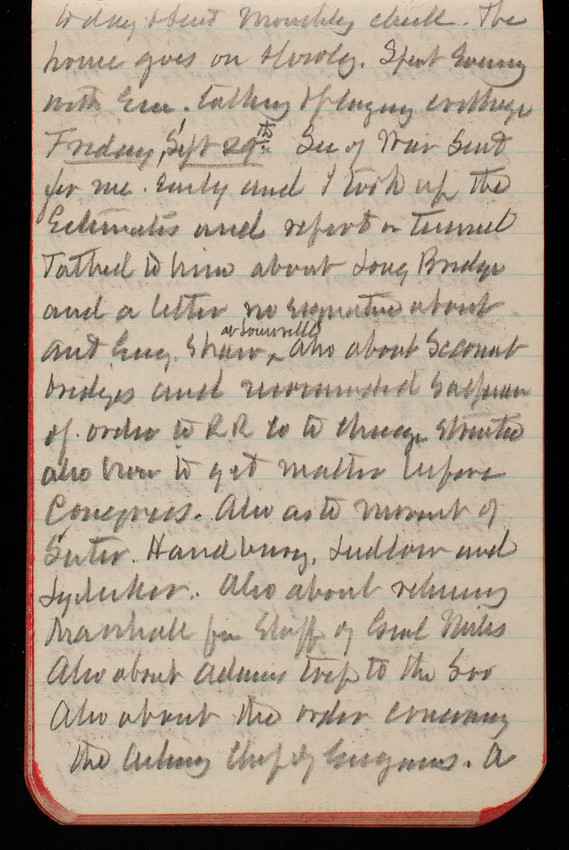 today & sent monthly check. The
house goes on slowly. Spent Evening
with Em. talking & playing cribbage
Friday, Sept 29th. Sec of War Sent
for me early and I took up the
Estimates and report on tunnel
Talked to him about Long Bridge
and a letter no signature about
asst Eng. Shaw, at Louisville also about Sccount
bridges and recommended
of order to RR Co to change
also how to get matter before
Congress. Also as to movement of
Suter. Handbury, Ludlow and
Lydecker. Also about relieving
Marshall from Staff of Genl Miles
Also about Adams trip to the Soo
Also about the order concerning
the Acting Chief of Engineers. A